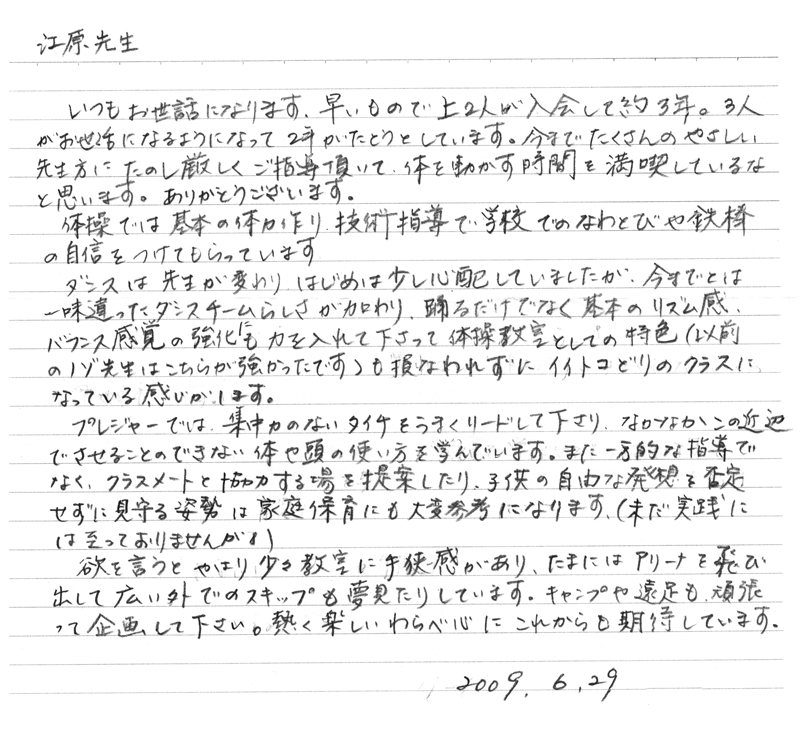 江原先生
いつもお世話になります。早いもので上2人が入会して約3年。3人
がお世話になるようになって2年がたとうとしています。今までたくさんのやさしい
先生方にたのし厳しくご指導頂いて、体を動かす時間を満喫しているな
と思います。ありがとうございます。
体操では基本の体力作り、技術指導で、学校でのなわとびや鉄棒
の自信をつけてもらっています
ダンスは先生が変わり、はじめは少し心配していましたが、今までとは
一味違ったダンスチームらしさが加わり、踊るだけでなく基本のリズム感、
バランス感覚の強化にも力を入れて下さって体操教室としての特色(以前
のノゾ先生はこちらが強かったです)も損なわれずにイイトコどりのクラスに
なっている感じがします。
プレジャーでは、集中力のないタイチをうまくリードして下さり、なかなかこの近辺
でさせることのできない体や頭の使い方を学んでいます。また一方的な指導で
なく、クラスメートと協力する場を提案したり、子供の自由な発想を否定
せずに見守る姿勢は家庭保育にも大変参考になります、(未だ実践に
は至っておりませんが)
欲を言うとやはり少々教室に手狭感があり、たまにはアリーナを飛び
出して広い外でのスキップも夢見たりしています。キャンプや遠足も、頑張
って企画して下さい。熱く楽しいわらべ心にこれからも期待しています。
2009. 6.29